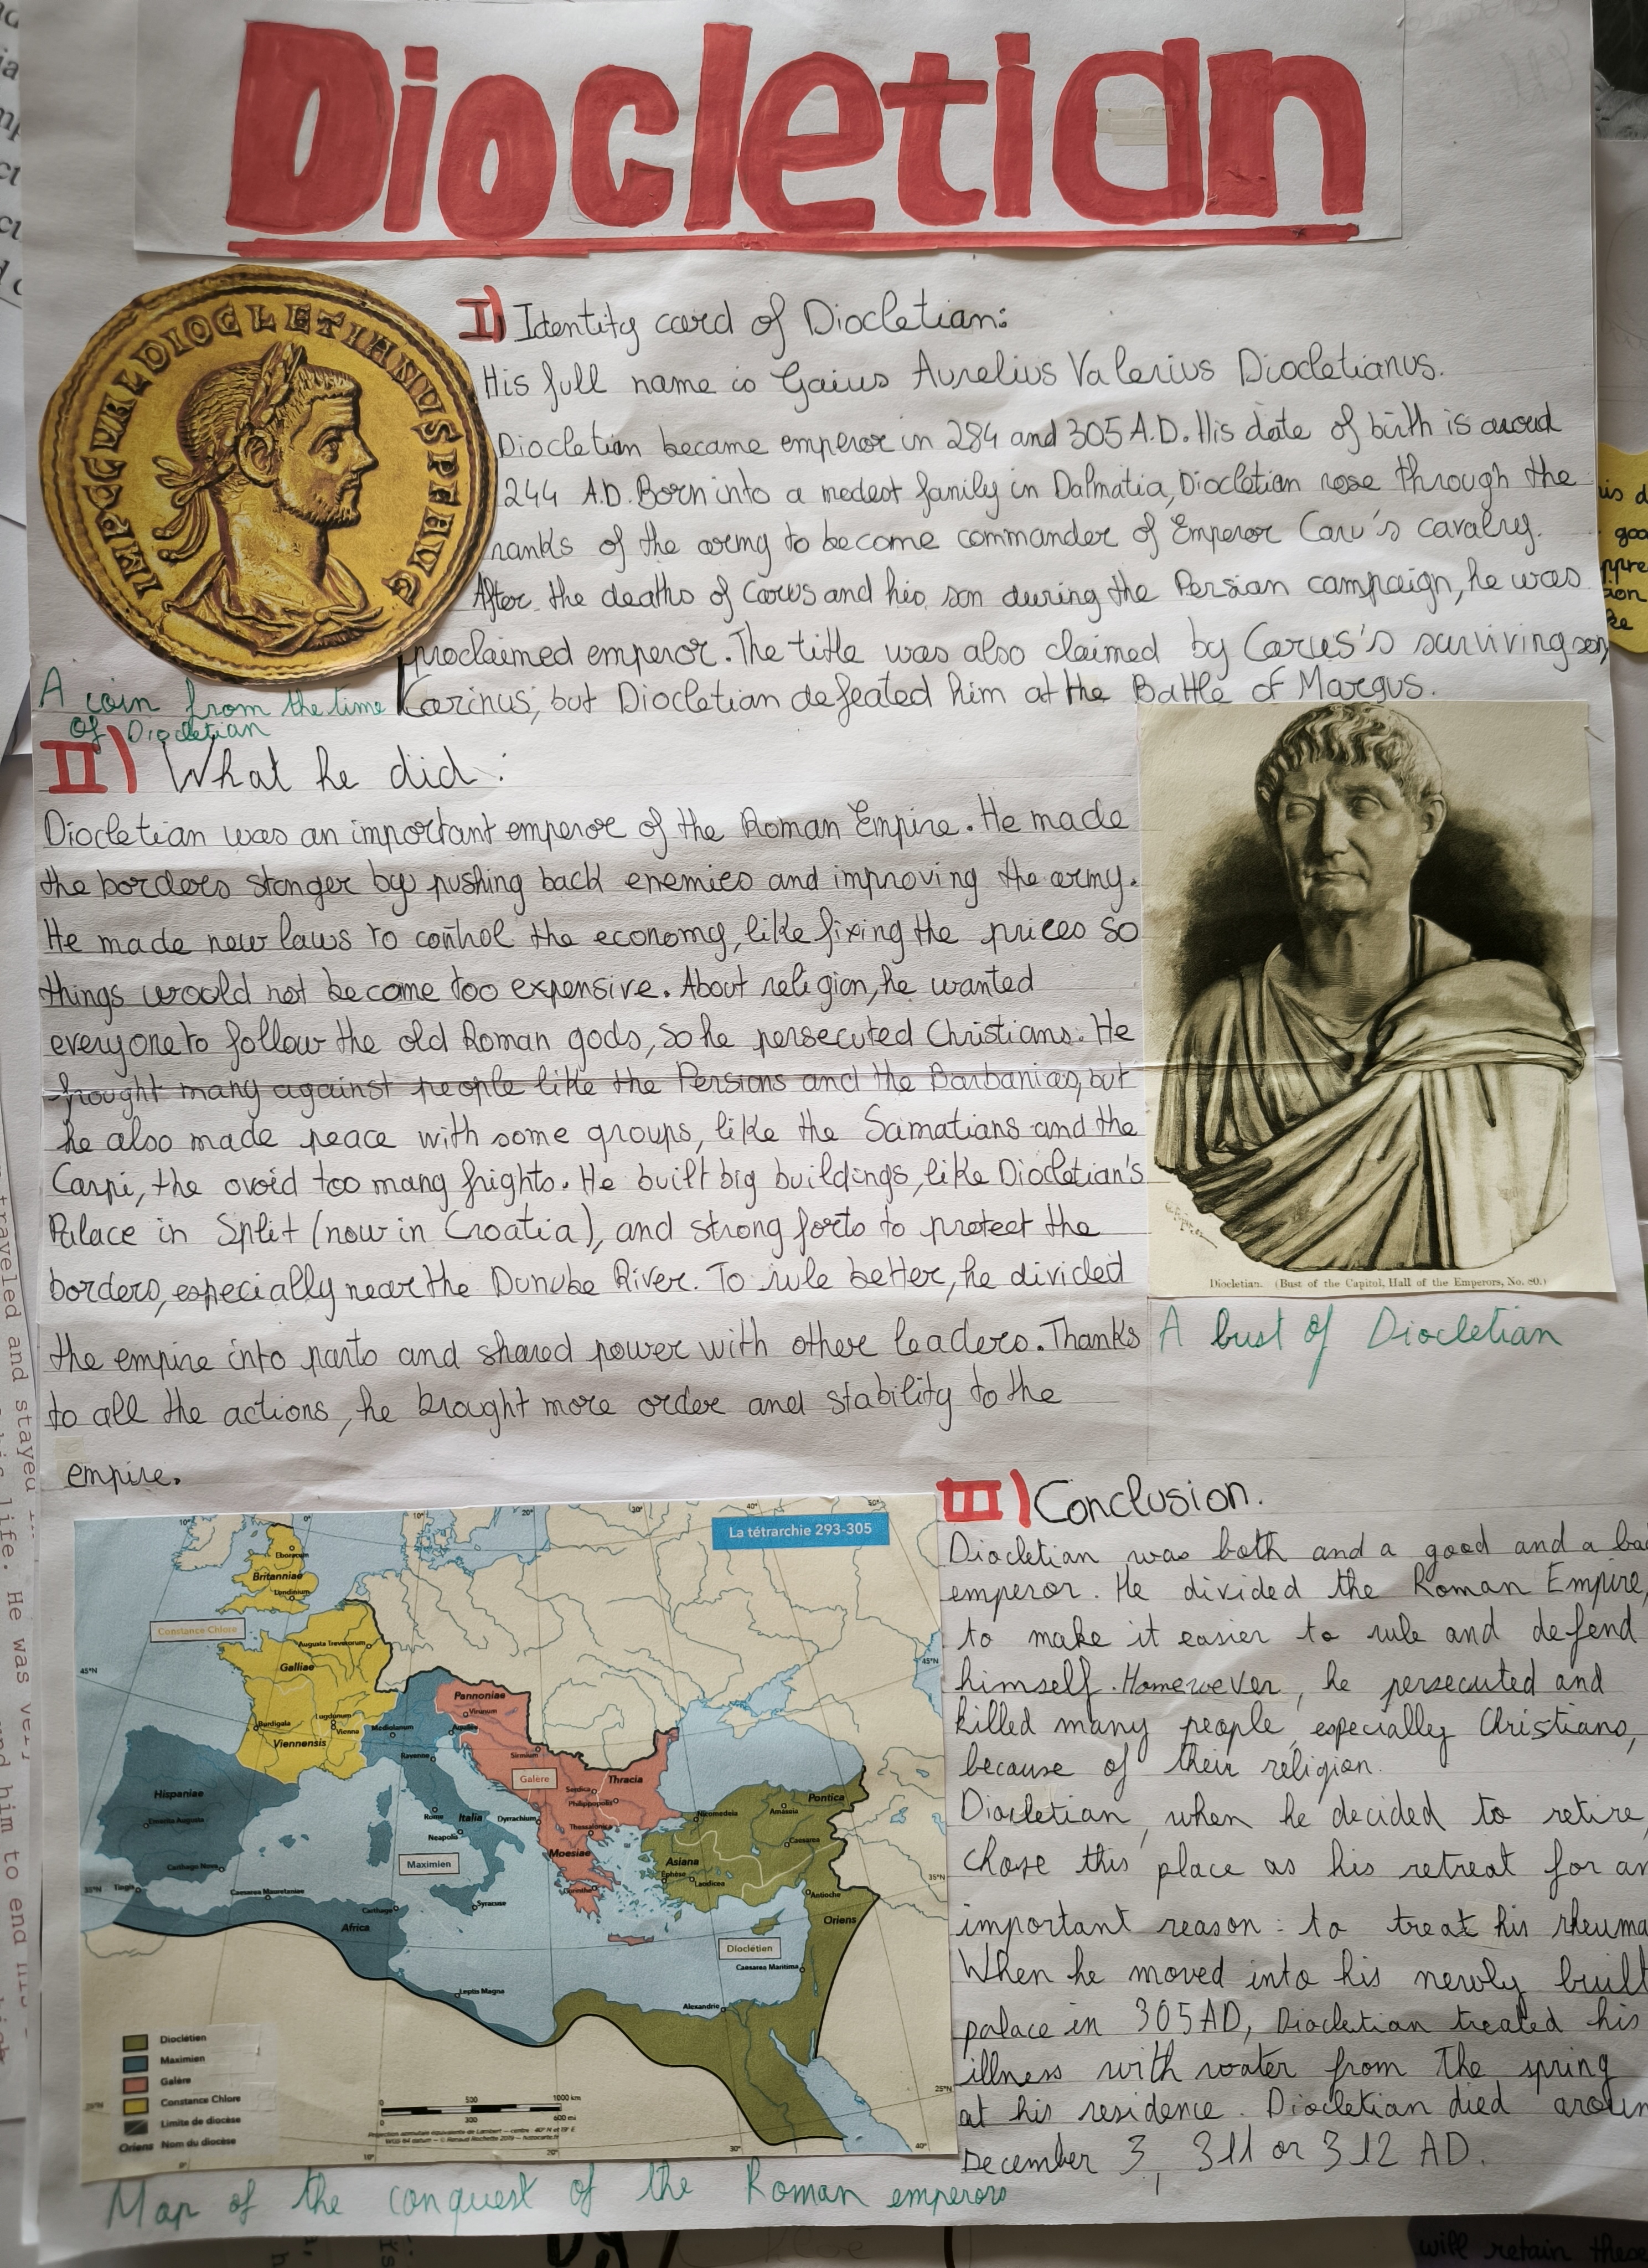 Diocletian
IMP C C VAL DIOCLETIANVS P F AVG
I) Identity card of Diocletian:
His full name is Gaius Aurelius Valerius Diocletianus.
Diocletian became emperor in 284 and 305 A.D. His date of birth is
244 A.D. Born into a modest family in Dalmatia, Diocletian rose through the
ranks of the army to become commander of Emperor Caru's cavalry.
After the deaths of Carus and his son during the Persian campaign, he was
proclaimed emperor. The title was also claimed by Carus's surviving son,
Carinus, but Diocletian defeated him at the Battle of Margus.
A coin from the time
of Diocletian
II) What he did:
Diocletian was an important emperor of the Roman Empire. He made
the borders stonger by pushing back enemies and improving the army.
He made new laws to control the economy, like fixing the prices so
things would not become too expensive. About religion, he wanted
everyone to follow the old Roman gods, so he persecuted Christians. He
frought many against people like the Persians and the Barbanias, but
he also made peace with some groups, like the Samatians and the
Carpi, the ovoid too many frights. He built big buildings, like Diocletian's
Palace in Split (now in Croatia), and strong forts to protect the
borders, especially near the Dunube River. To rule better, he divided
the empire into parts and shared power with other leaders. Thanks
to all the actions, he brought more order and stability to the
empire.
Diocletian. (Bust of the Capitol, Hall of the Emperors, No. 80.)
A bust of Diocletian
La tétrarchie 293-305
Eboracum
Britanniae
Londinium
Constance Chlore
Augusta Treverorum
Galliae
Burdigala
Lugdunum
Vienna
Viennensis
Pannoniae
Virunum
Mediolanum
Aquileia
Ravenne
Sirmium
Galère
Serdica
Thracia
Philippopolis
Hispaniae
Emerita Augusta
Rome
Italia
Neapolis
Dyrrachium
Thessalonica
Nicomedia
Amaseia
Pontica
Caesarea
Carthago Nova
Maximien
Moesiae
Asiana
Ephèse
Laodicea
Corinthe
Antioche
Tingis
Caesarea Mauretaniae
Carthage
Syracuse
Africa
Oriens
Dioclétien
Caesarea Maritima
Leptis Magna
Alexandrie
Dioclétien
Maximien
Galère
Constance Chlore
Limite de diocèse
Oriens Nom du diocèse
0 500 1000 km
0 300 600 mi
Map of the conquest of the Roman emperors
III) Conclusion.
Diocletian was both and a good and a bad
emperor. He divided the Roman Empire,
to make it easier to rule and defend
himself. Homewever, he persecuted and
killed many people, especially Christians,
because of their religion.
Diocletian, when he decided to retire,
chose this place as his retreat for an
important reason: to treat his rheuma
When he moved into his newly built
palace in 305 AD, Diocletian treated his
illness with water from the spring
at his residence. Diocletian died aroun
December 3, 311 or 312 AD.
traveled and stayed
life. He was very
and him to end
will retain these